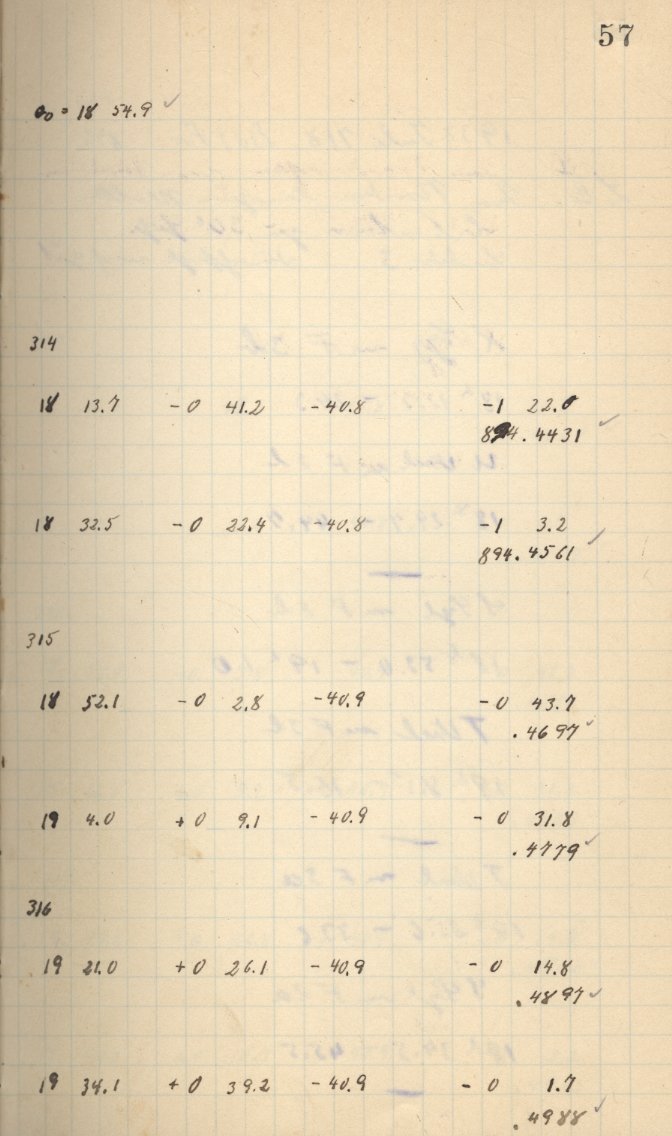 57
θ₀ = 18 54.9 ✓
314
18 13.7 -0 41.2 -40.8 -1 22.0
894.4431 ✓
18 32.5 -0 22.4 -40.8 -1 3.2
894.4561 ✓
315
18 52.1 -0 2.8 -40.9 -0 43.7
.4697 ✓
19 4.0 +0 9.1 -40.9 -0 31.8
.4779 ✓
316
19 21.0 +0 26.1 -40.9 -0 14.8
.4897 ✓
19 34.1 +0 39.2 -40.9 -0 1.7
.4988 ✓